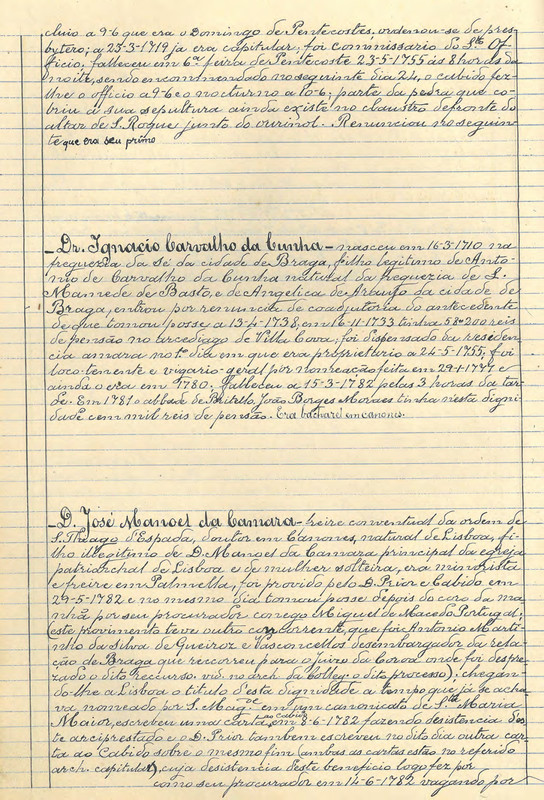 cluio a 9-6 que era o Domingo de Pentecostes, ordenou-se de pres-
bytero; a 23-3-1719 ja era capitular; foi commissario do Sto Of-
ficio, falleceu em 6ª feira de Pentecoste 23-5-1755 ás 8 horas da
noite, sendo encommendado no seguinte dia 24, o cabido fez-
lhe o officio a 9-6 e o nocturno a 10-6; parte da pedra que co-
briu a sua sepultura ainda existe no claustro defronte do
altar de S. Roque junto do ourinol. Renunciou no seguin-
te que era seu primo
— Dr. Ignacio Carvalho da Cunha — nasceu em 16-3-1710 na
freguezia da Sé da cidade de Braga, filho legitimo de Anto-
nio de Carvalho da Cunha natural da freguezia de S.
Mamede de Basto, e de Angelica de Araujo da cidade de
Braga, entrou por renuncia de coadjutoria do antecedente
de que tomou posse a 13-4-1738, em 16-11-1733 tinha 58$200 reis
de pensão no arcediago de Villa Cova, foi dispensado da residen-
cia amara no 1º dia em que era proprietario a 24-5-1755, foi
loco-tenente e vigario-geral por nomeação feita em
ainda o era em 1780. Falleceu a 15-3-1782 pelas 3 horas da tar-
de. Em 1781 o abbade de João Borges Moraes tinha nesta digni-
dade cem mil reis de pensão. Era bacharel em canones.
— D. José Manoel da Camara — freire conventual da ordem de
S. Thiago d'Espada, doutor em Canones, natural de Lisboa, fi-
lho illegitimo de D. Manoel da Camara principal da egreja
patriarchal de Lisboa e de mulher solteira, era minorista
e freire em Palmella, foi provido pelo D. Prior e Cabido em
29-5-1782 e no mesmo dia tomou posse depois do coro da ma-
nhã por seu procurador conego Miguel de Macedo Portugal;
este provimento teve outro concorrente, que foi Antonio Marti-
nho da Silva de Queiroz e Vasconcellos desembargador da rela-
ção de Braga que recorreu para o juizo da Coroa onde foi despre-
zado o dito recurso. vid. no arch. da Colleg. o dito processo); chegan-
do-lhe a Lisboa o titulo d'esta dignidade a tempo que já se acha-
va nomeado por S. Magde em um canonicato de Sta Maria
Maior, escreveu uma carta ao Cabido em 8-6-1782 fazendo desistencia des-
te arciprestado e o D. Prior tambem escreveu no dito dia outra car-
ta ao Cabido sobre o mesmo fim (ambas as cartas estão no referido
arch. capitular), cuja desistencia deste beneficio logo fez por
como seu procurador em 14-6-1782 vagando por